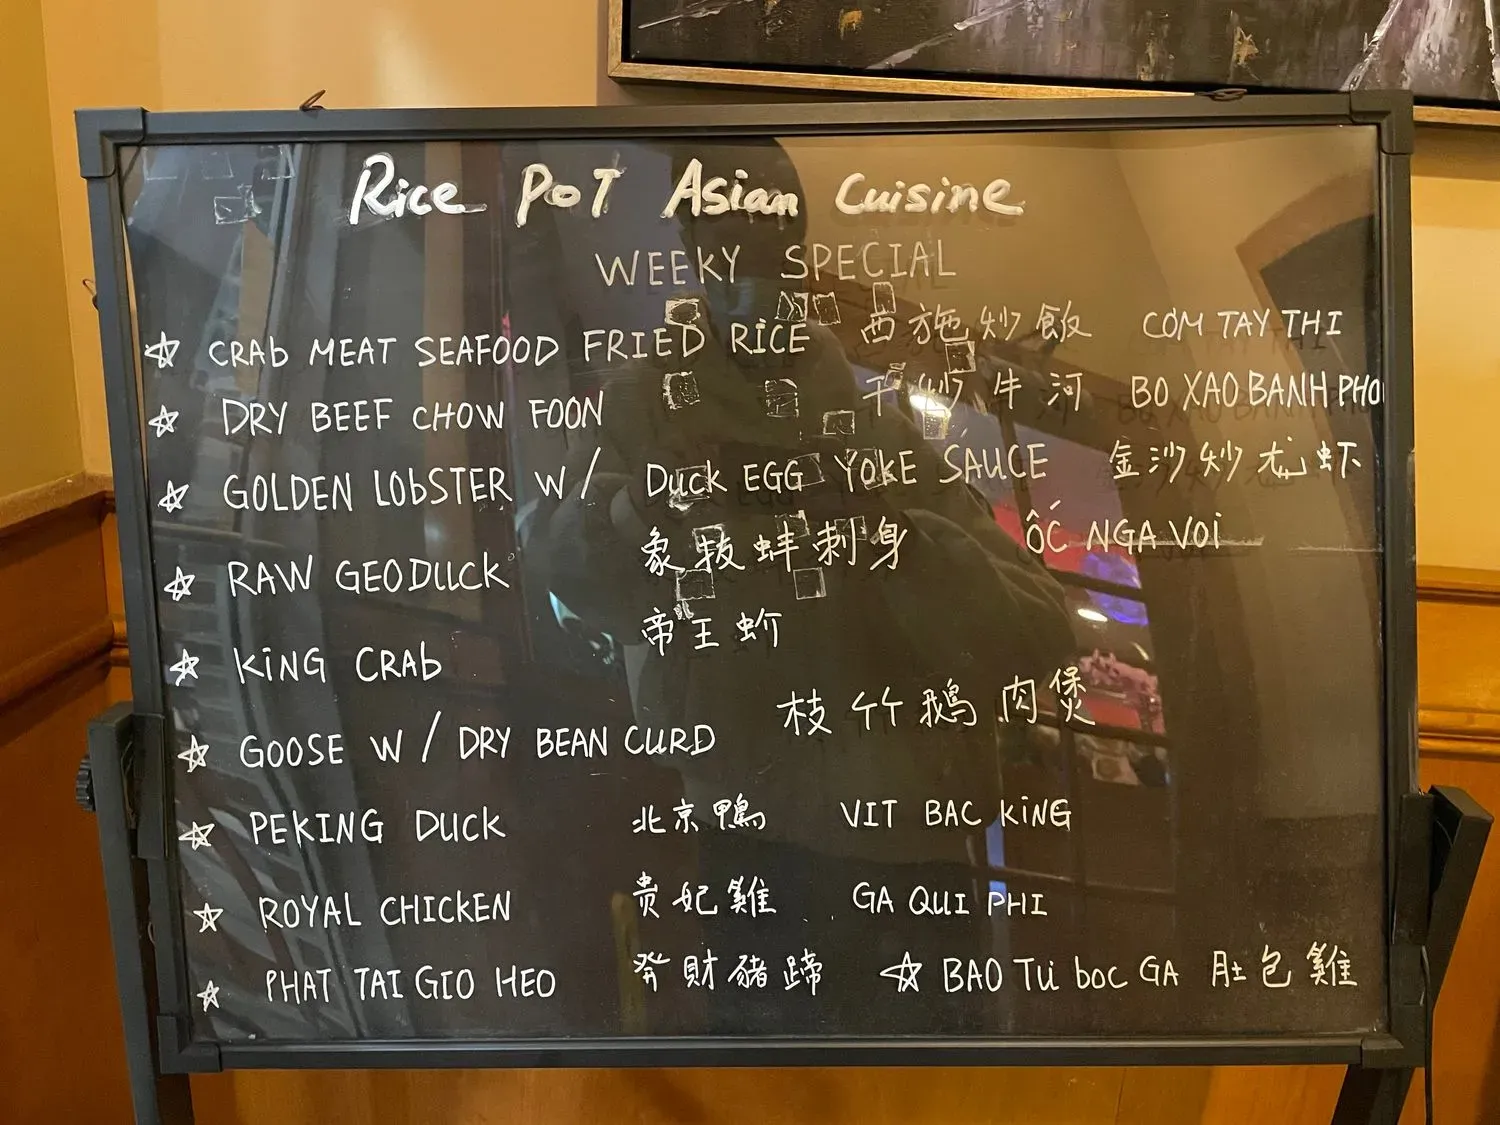 Rice PoT Asian Cuisine
WEEKY SPECIAL
☆ CRAb MEAT SEAFOOD FRIED RiCE 西施炒飯 CƠM TAY THI
☆ DRY BEEF CHOW FOON 干炒牛河 BO XAO BANH PHO
☆ GOLDEN LObSTER W/ Duck EGG YOKE SAUCE 金沙炒龙虾
☆ RAW GEODUCK 象拔蚌刺身 ỐC NGA VOi
☆ KiNG CRAb 帝王蚧
☆ GOOSE W/ DRY BEAN CURD 枝竹鵝肉煲
☆ PEKING DUCK 北京鴨 VIT BAC KiNG
☆ ROYAL CHICKEN 贵妃雞 GA QUI PHI
☆ PHAT TAI GIO HEO 發財豬蹄 ☆ BAO Tu boc GA 肚包雞